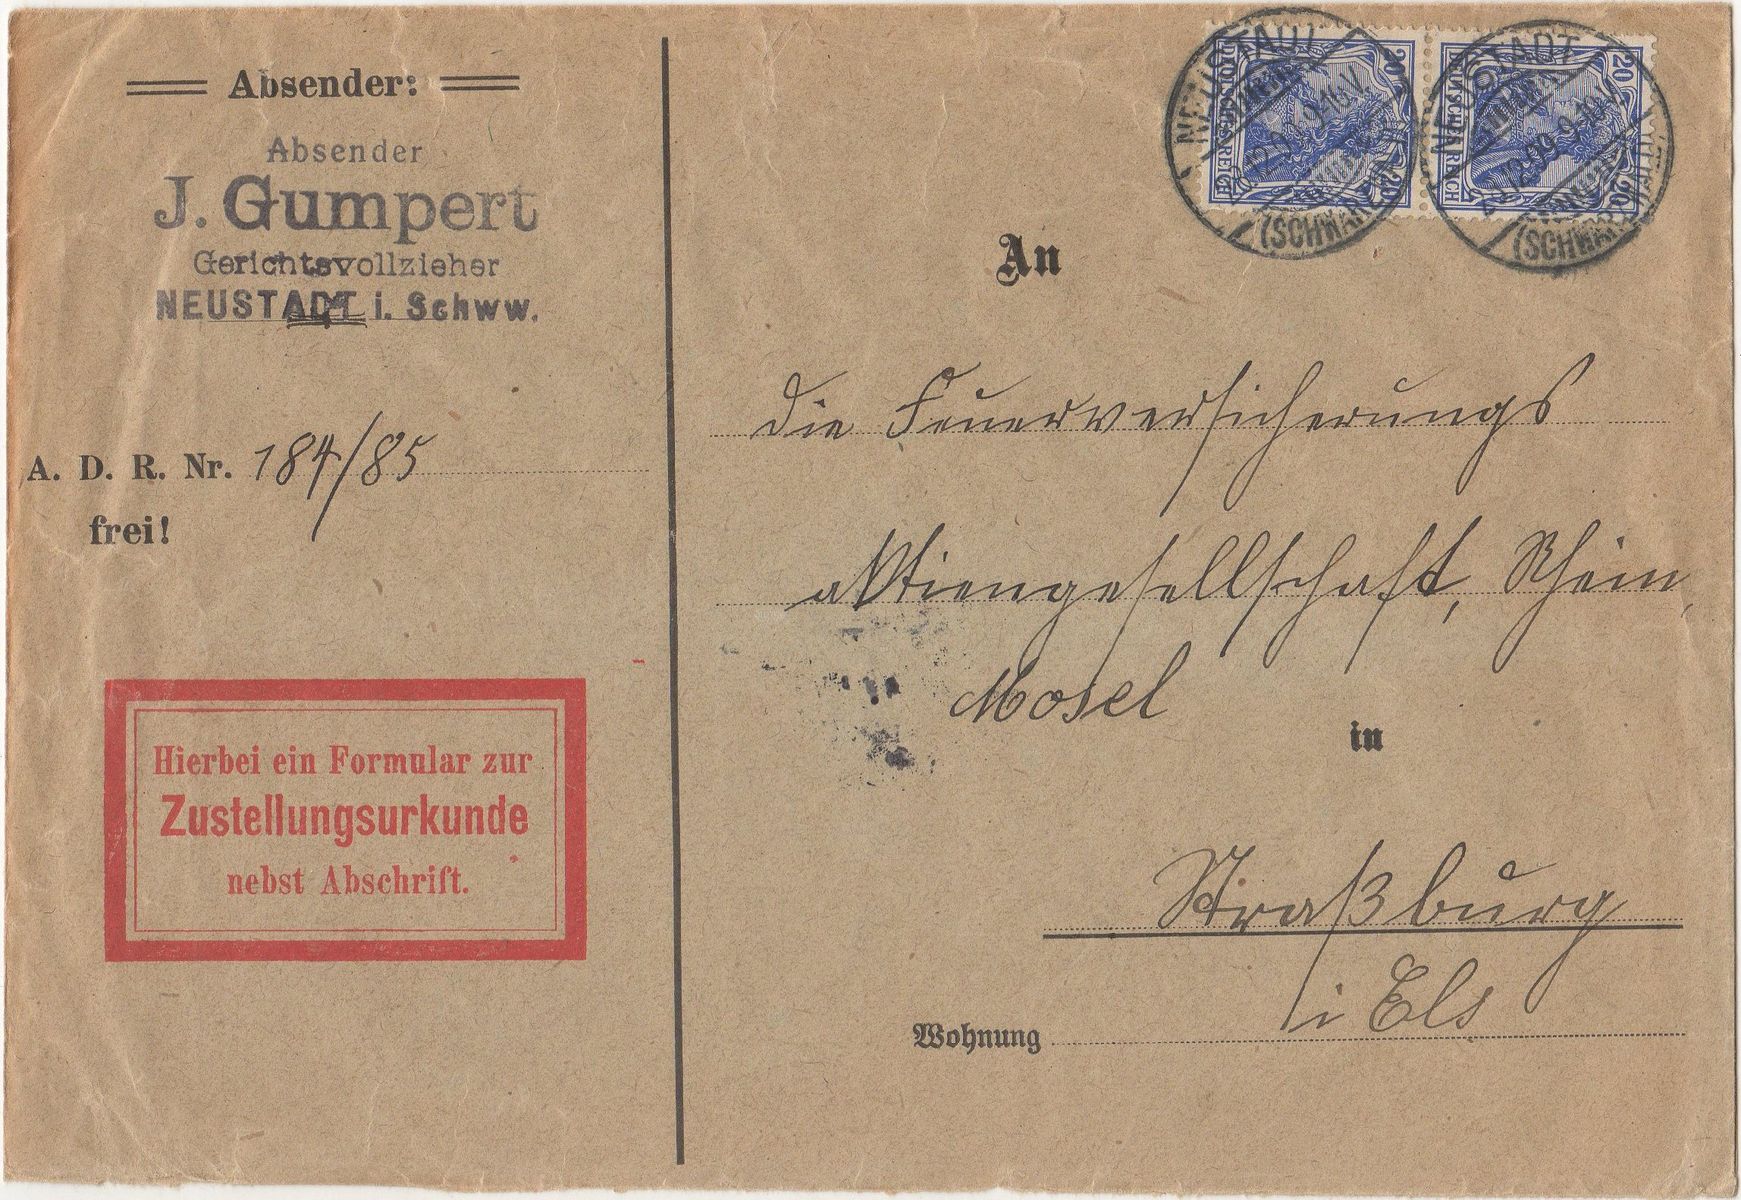 Absender:
Absender
J. Gumpert
Gerichtsvollzieher
NEUSTADT i. Schww.
A. D. R. Nr. 184/85
frei!
Hierbei ein Formular zur
Zustellungsurkunde
nebst Abschrift.
20 20
DEUTSCHES REICH
20
20 20
DEUTSCHES REICH
20
NEUSTADT
9-10V.
(SCHWARZWALD)
NEUSTADT
9-10V.
(SCHWARZWALD)
An
die Feuerversicherungs
aktiengesellschaft, Rhein,
Mosel
in
Straßburg
i Els
Wohnung